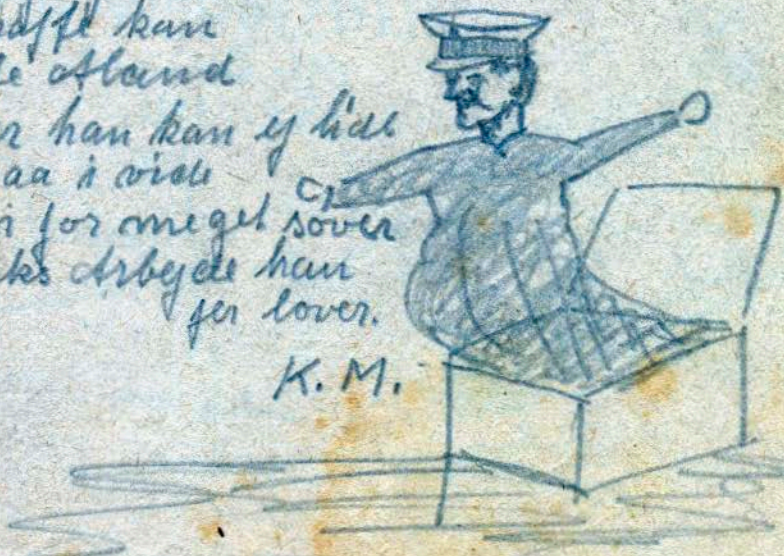 kan
Atland
han kan ej lide
aa i vide
for meget sover
Arbejde han
jer lover.
K. M.